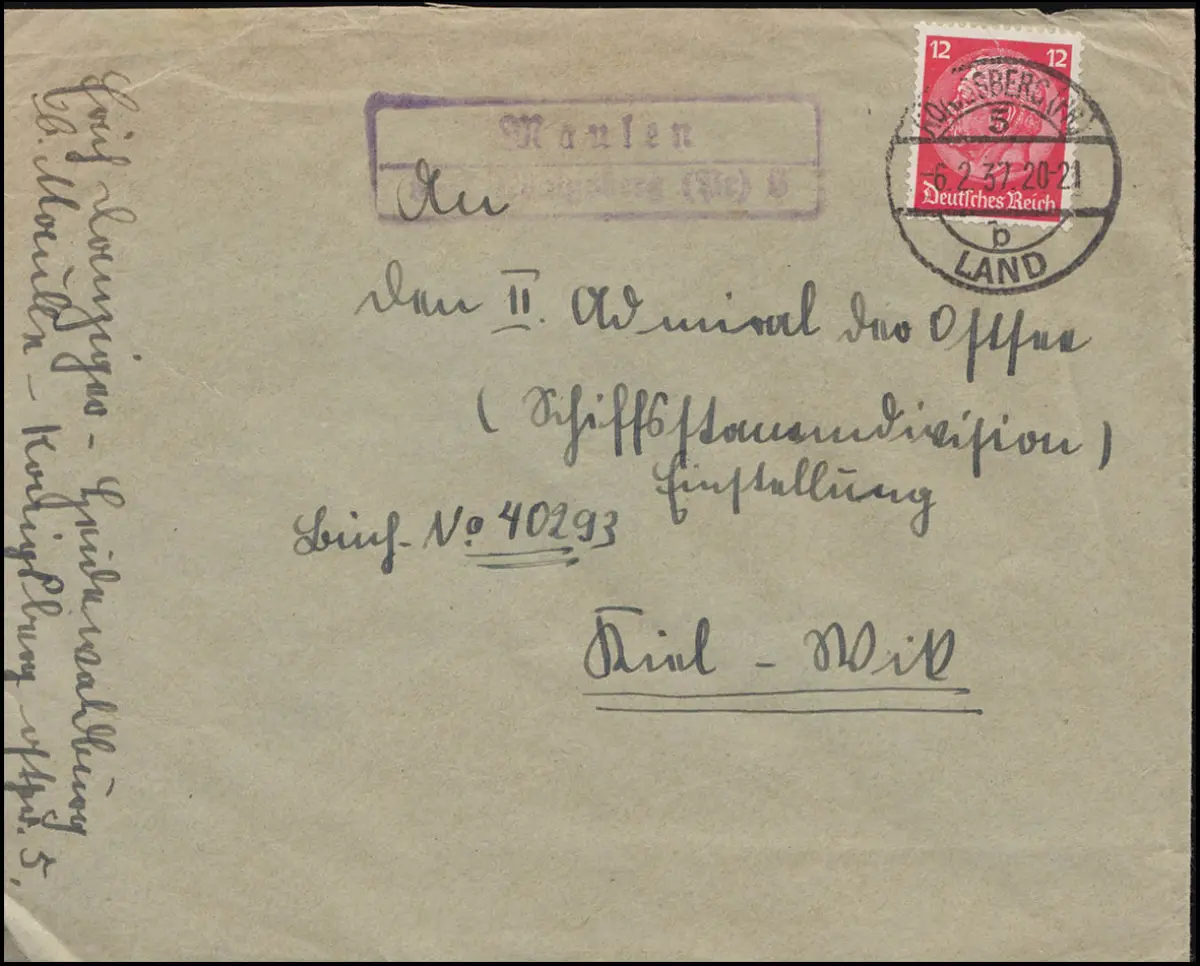 12 12
KÖNIGSBERG (PR)
5
-6.2.37.20-21
Deutsches Reich
b
LAND
Maulen
Königsberg (Pr) 5
An
den II. Admiral der Ostsee
(Schiffsstammdivision)
Einstellung
Buch-No 40293
Kiel - Wik
Danziger - Heidewaldburg
Maulen - Königsberg Ostpr. 5.